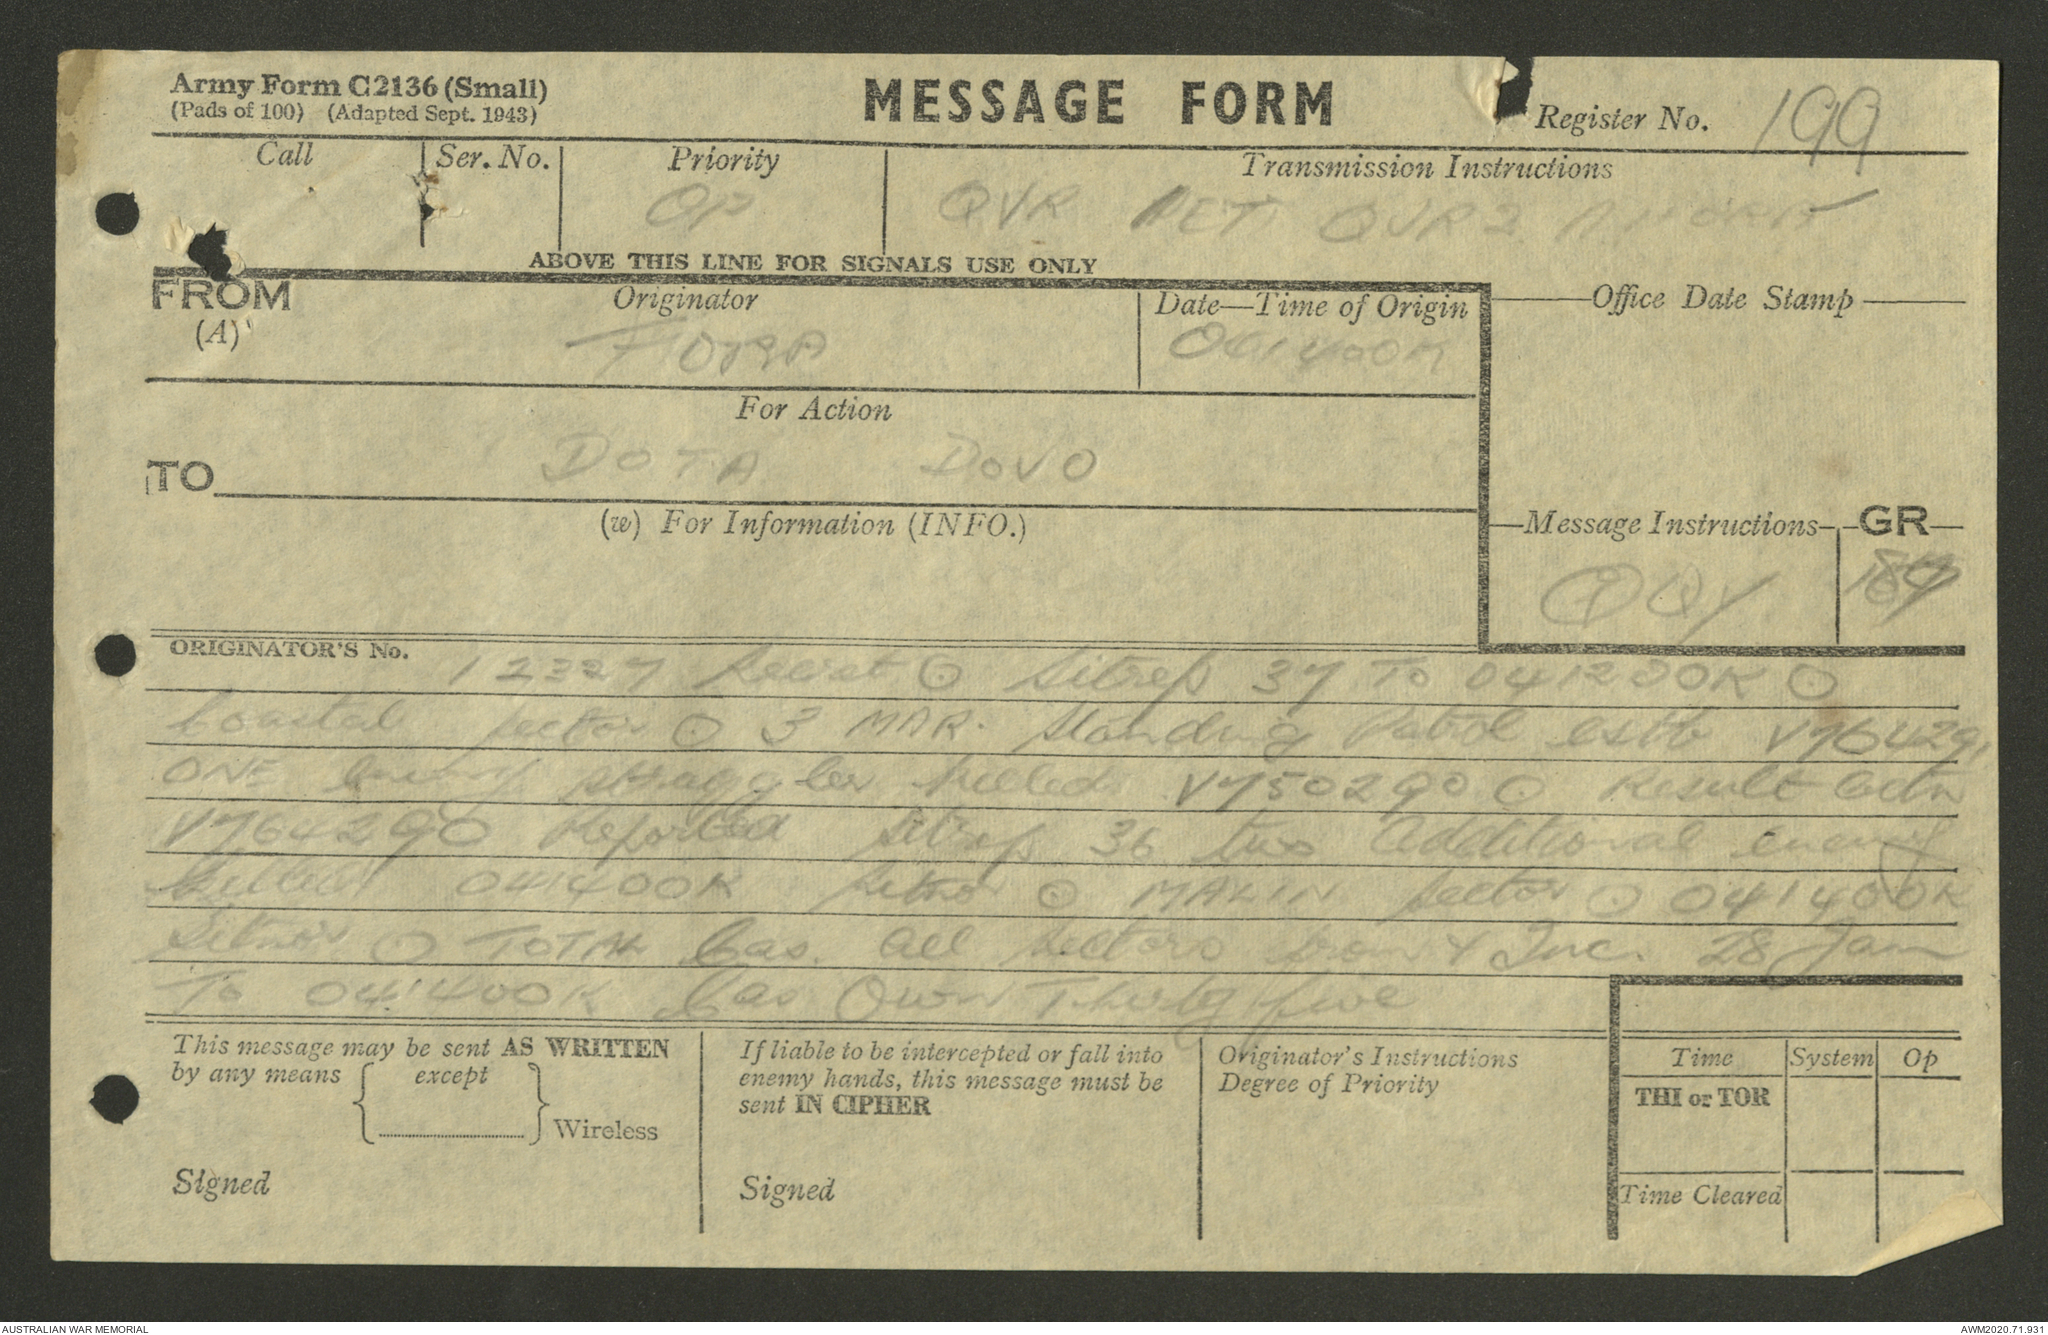 Army Form C2136 (Small)
(Pads of 100) (Adapted Sept. 1943)
MESSAGE FORM
Register No. 199
Call Ser. No. Priority Transmission Instructions
OP QVR DETI QVR2
ABOVE THIS LINE FOR SIGNALS USE ONLY
FROM
(A)
Originator Date—Time of Origin Office Date Stamp
041400K
For Action
TO
DOTA DOVO
(w) For Information (INFO.)
Message Instructions GR
QQY 189
ORIGINATOR'S No.
12327 Secret ⊙ Sitrep 37 To 041200K ⊙
Coastal sector ⊙ 3 MAR. Standing Patrol estb VY764291
ONE enemy straggler killed VY750290 ⊙ Result actn
VY764290 Reported Sitrep 36 two additional enemy
killed 041400K sitnor ⊙ MALIN sector ⊙ 041400K
Sitnor ⊙ TOTAL Cas. all sectors from & Inc. 28 Jan
To 041400K Cas Own Thirty five
This message may be sent AS WRITTEN
by any means except
Wireless
Signed
If liable to be intercepted or fall into
enemy hands, this message must be
sent IN CIPHER
Signed
Originator's Instructions
Degree of Priority
Time System Op
THI or TOR
Time Cleared
AUSTRALIAN WAR MEMORIAL AWM2020.71.931